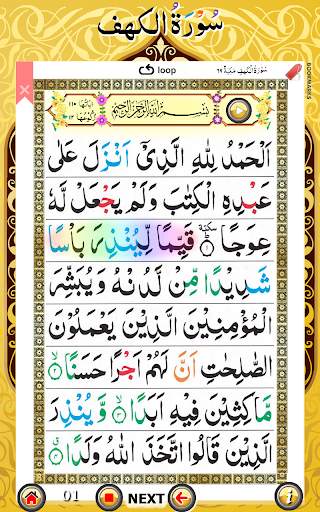 سُوْرَۃُ الْكَهْف
loop
سُوْرَةُ الْكَهْفِ مَكِّيَّةٌ ٦٩
BOOKMARKS
بِسْمِ اللّٰهِ الرَّحْمٰنِ الرَّحِيْمِ
اَلْحَمْدُ لِلّٰهِ الَّذِىْٓ اَنْزَلَ عَلٰى
عَبْدِهِ الْكِتٰبَ وَلَمْ يَجْعَلْ لَّهٗ
عِوَجًا ۜ ١ قَيِّمًا لِّيُنْذِرَ بَاْسًا
شَدِيْدًا مِّنْ لَّدُنْهُ وَيُبَشِّرَ
الْمُؤْمِنِيْنَ الَّذِيْنَ يَعْمَلُوْنَ
الصّٰلِحٰتِ اَنَّ لَهُمْ اَجْرًا حَسَنًا ٢
مَّاكِثِيْنَ فِيْهِ اَبَدًا ٣ وَّيُنْذِرَ
الَّذِيْنَ قَالُوا اتَّخَذَ اللّٰهُ وَلَدًا ٤
01 NEXT